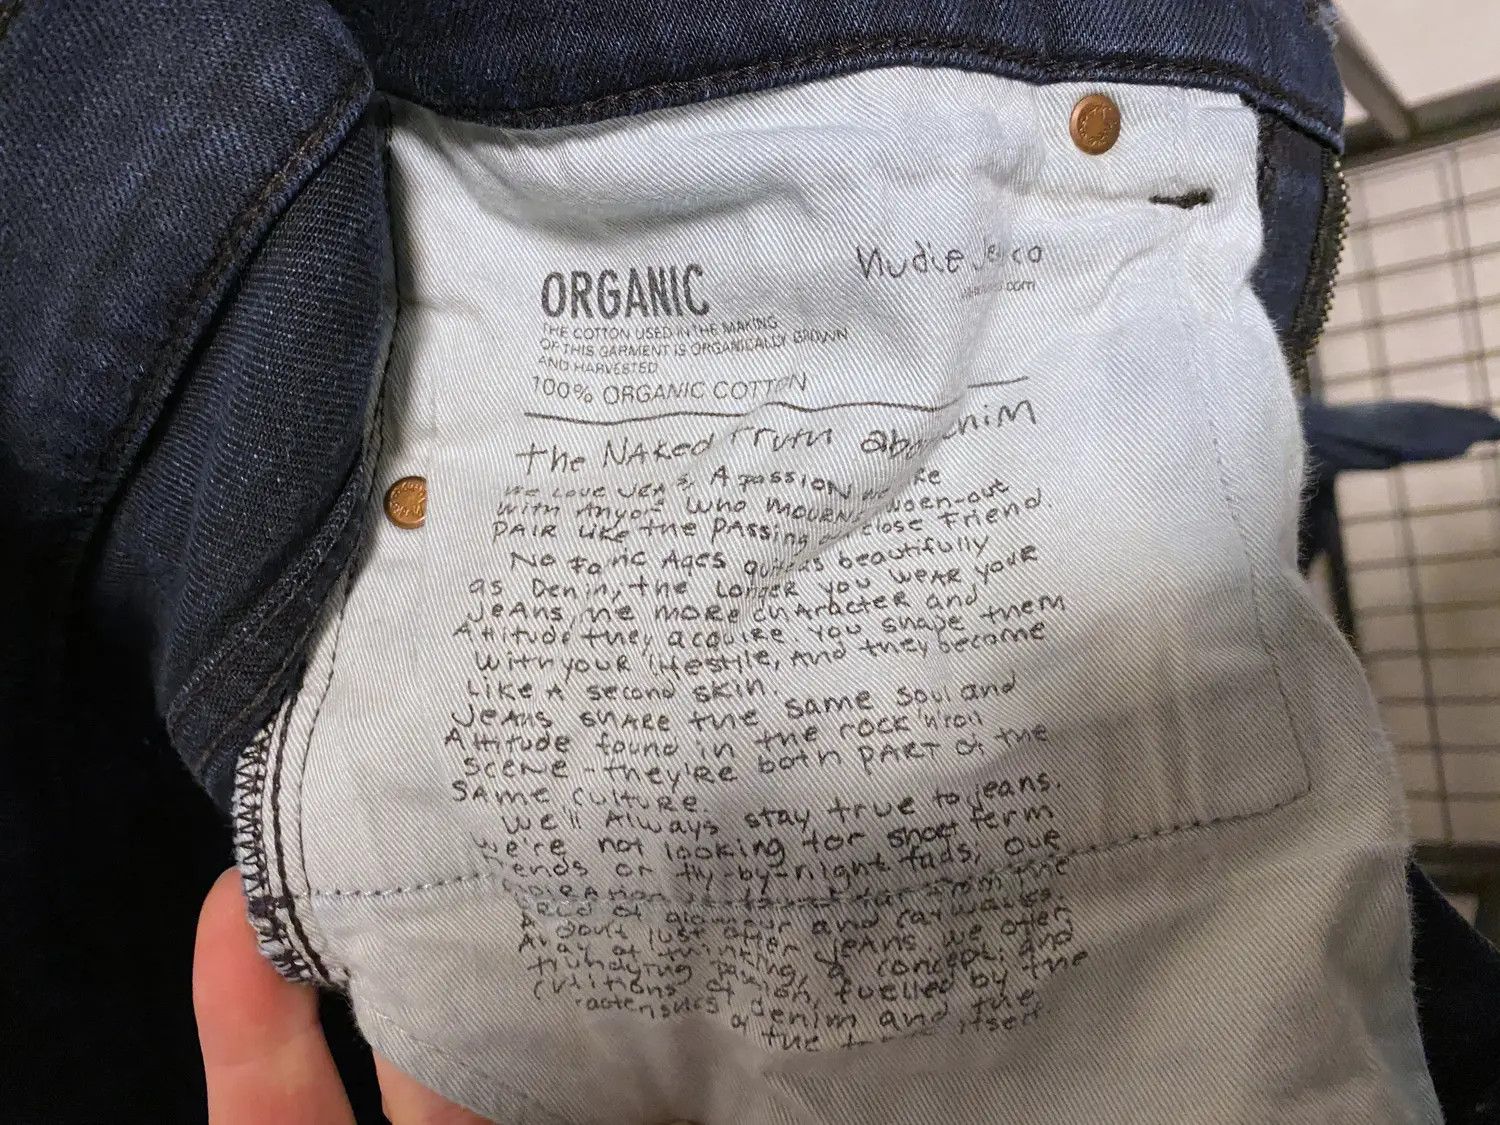 Nudie Je co
.com
ORGANIC
THE COTTON USED IN THE MAKING
OF THIS GARMENT IS ORGANICALLY GROWN
AND HARVESTED
100% ORGANIC COTTON
the NAKed Truth
We Love A passion
with who mourns worn-out
PAIR Like the PAssing close friend.
No Ages beautifully
as Denim, the Longer you wear your
Jeans, more character and
Attitude they acquire. You shape them
with your lifestyle, And they become
Like A second skin.
Jeans share the same soul and
Attitude found in the rock 'n'roll
scene - they're both part of the
same culture.
We'll Always stay true to jeans.
we're not looking for short term
or fly-by-night fads, our
far from the
of glamour and catwalks.
just offer jeans, we offer
of thinking, a concept. And
fuelled by the
of denim and the
the itself